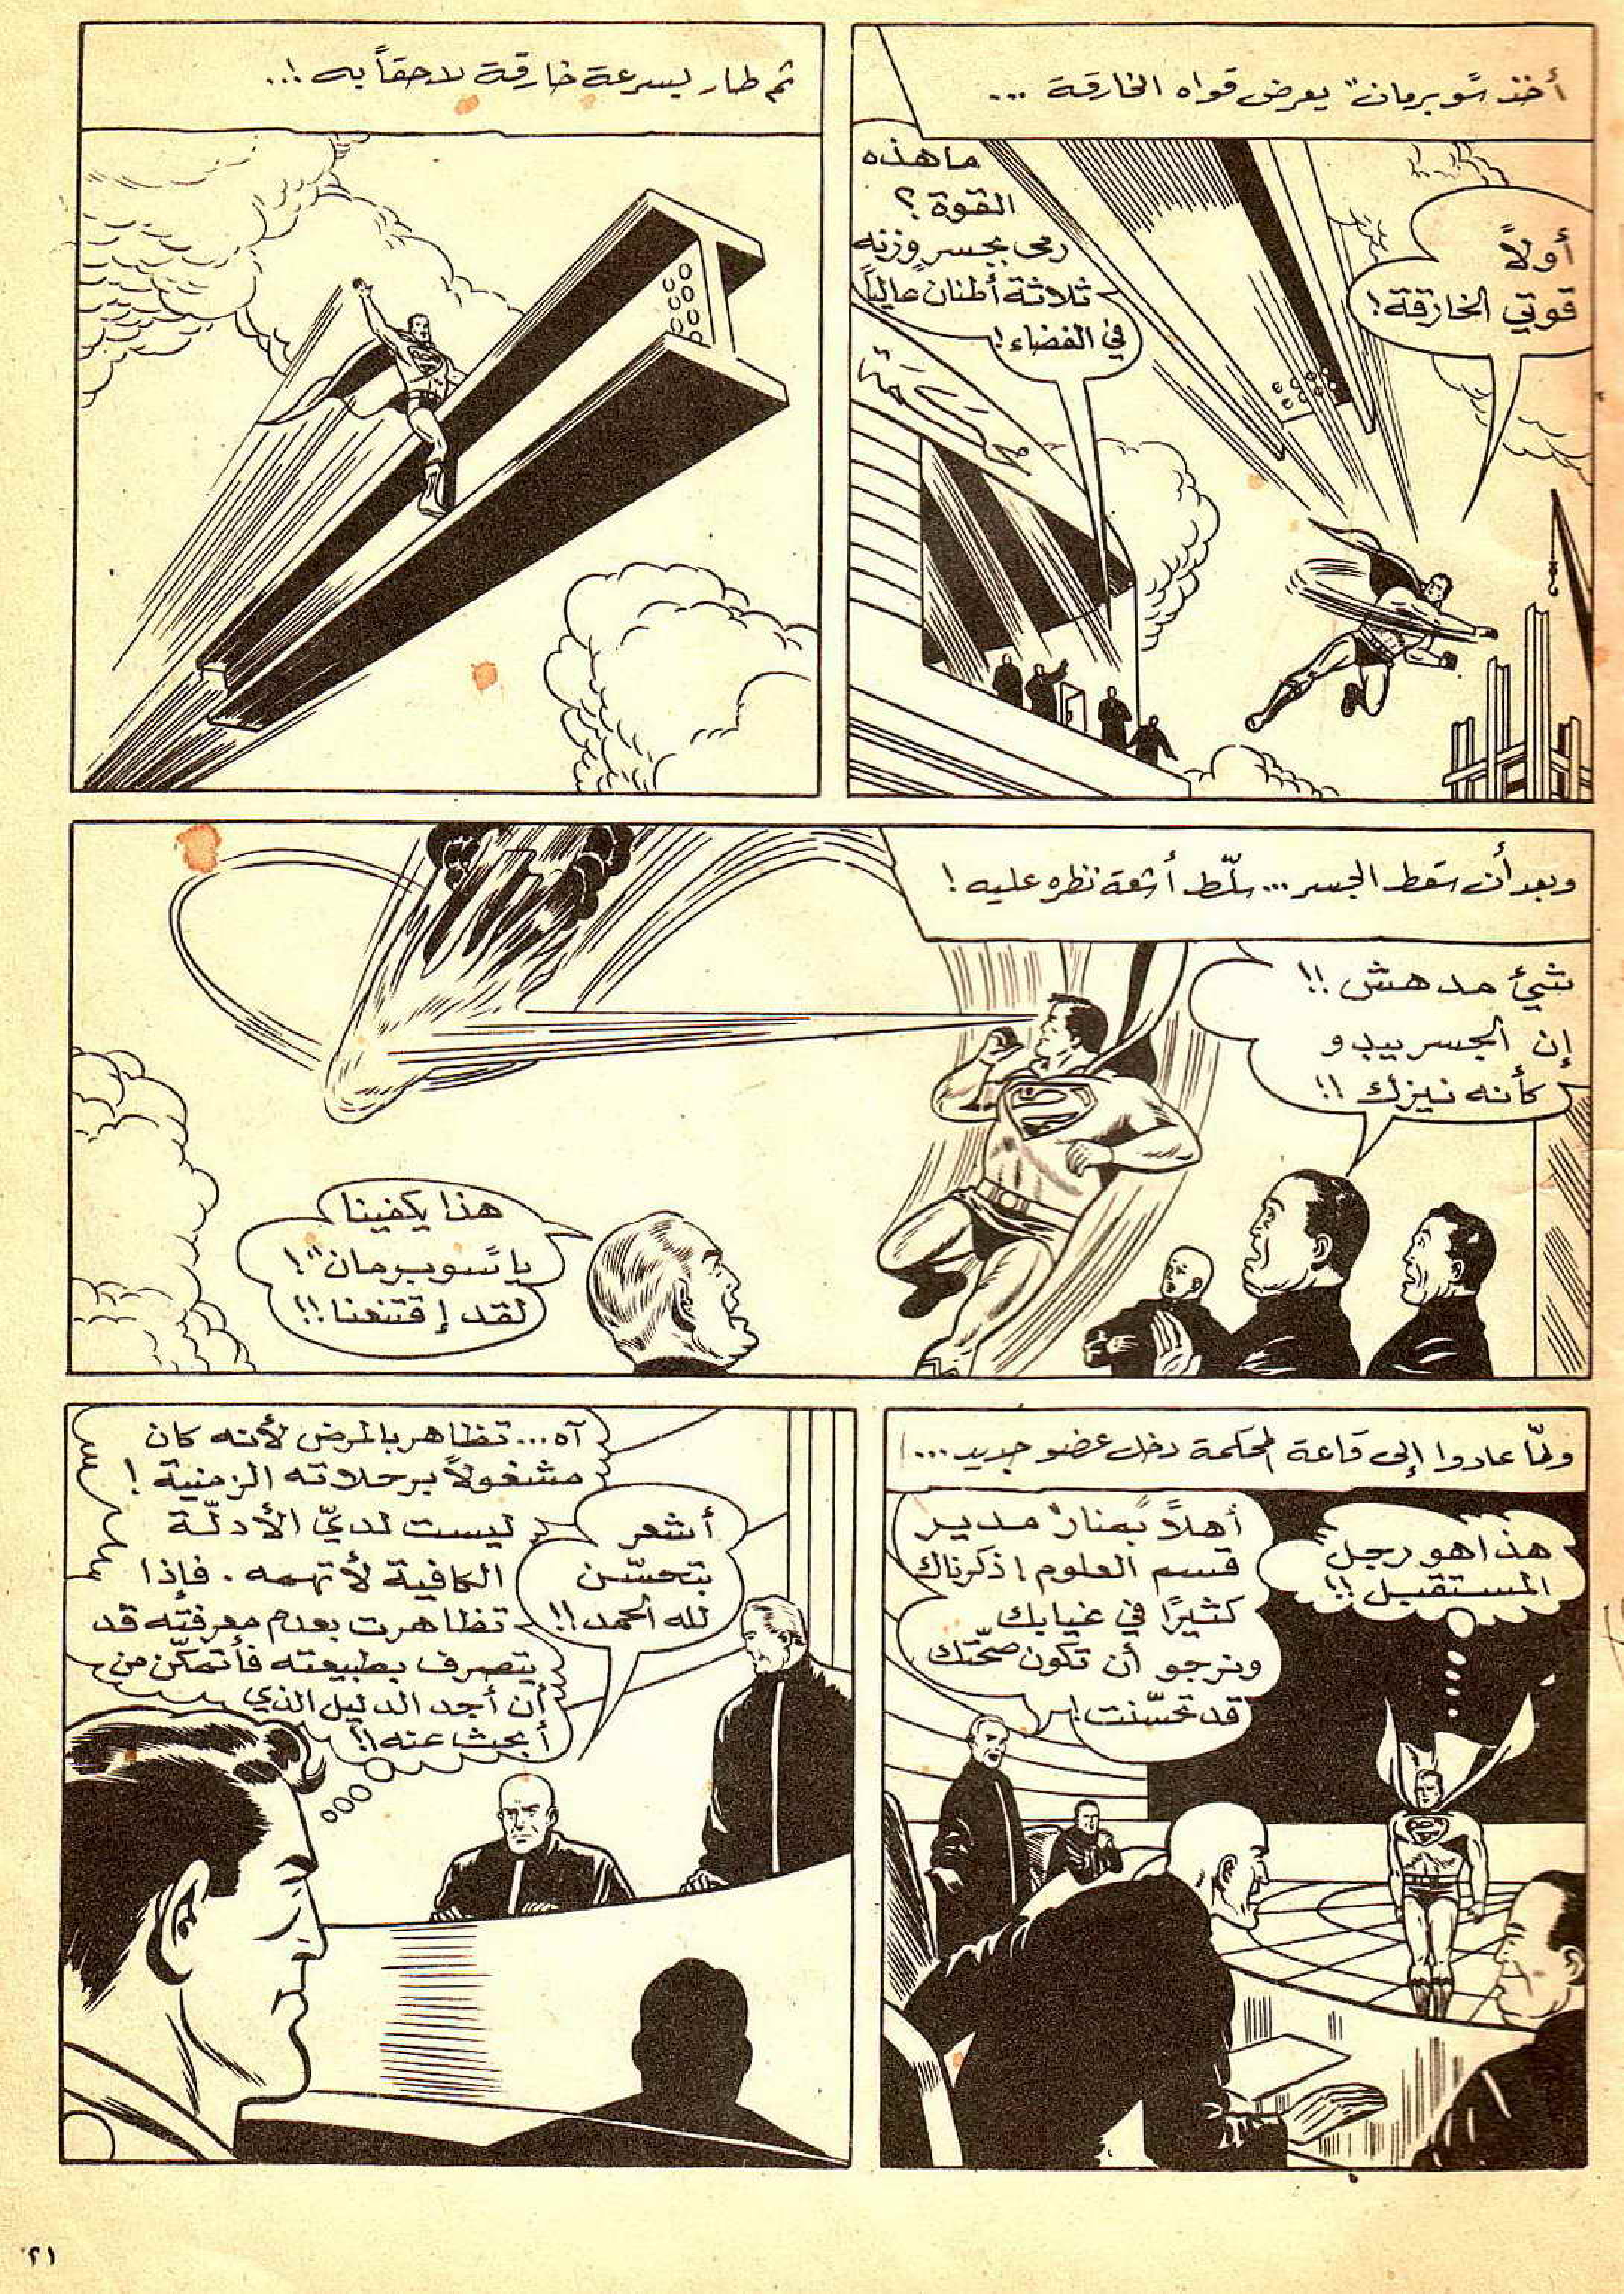 أخذ "سوبرمان" يعرض قواه الخارقة ...
أولاً
قوتي الخارقة!
ما هذه
القوة؟
رمى بجسر وزنه
ثلاثة أطنان عالياً
في الفضاء!
محكمة
ثم طار بسرعة خارقة لاحقاً به !..
وبعد أن سقط الجسر ... سلّط أشعة نظره عليه !
شيئ مدهش !!
إن الجسر يبدو
كأنه نيزك !!
هذا يكفينا
يا "سوبرمان" !
لقد إقتنعنا !!
ولمّا عادوا إلى قاعة المحكمة دخل عضو جديد ...
هذا هو رجل
المستقبل !!
أهلاً "بمنار" مدير
قسم العلوم ! ذكرناك
كثيرًا في غيابك
ونرجو أن تكون صحّتك
قد تحسّنت !
أشعر
بتحسّن
لله الحمد !!
آه ... تظاهر بالمرض لأنه كان
مشغولاً برحلاته الزمنية !
ليست لديّ الأدلّة
الكافية لأتهمه . فإذا
تظاهرت بعدم معرفته قد
يتصرف بطبيعته فأتمكّن من
أن أجد الدليل الذي
أبحث عنه !!
٢١